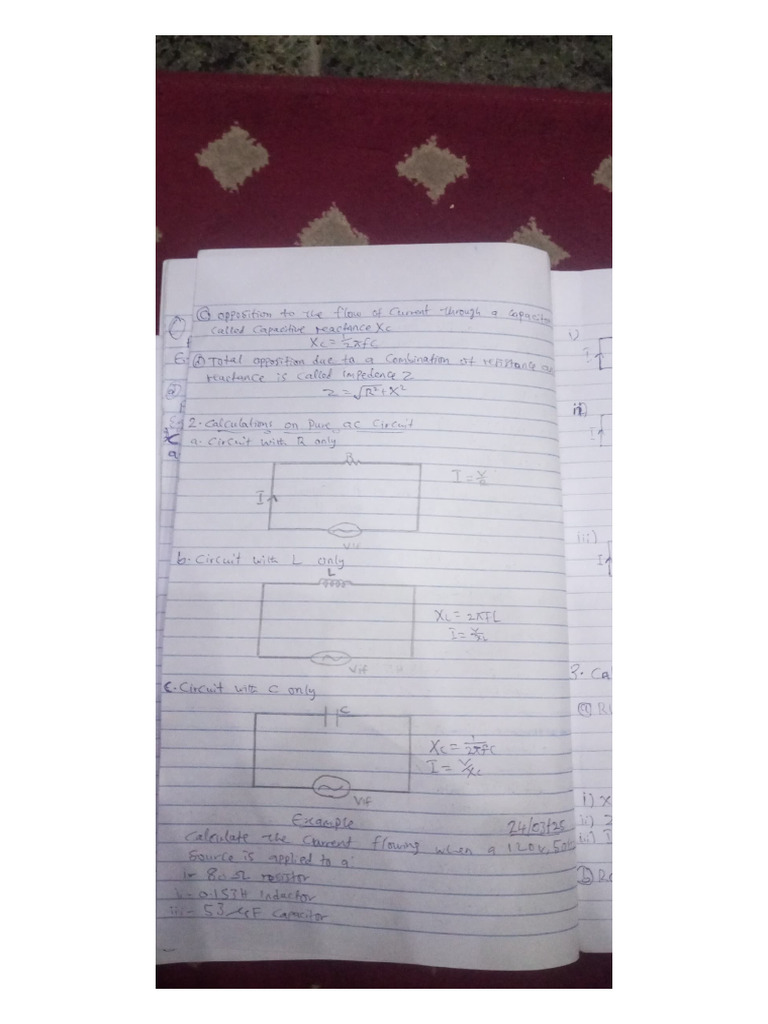 (c) opposition to the flow of Current through a capacitor
called Capacitive reactance Xc
Xc = 1/2πfC
(d) Total opposition due to a Combination of resistance
reactance is called impedence Z
Z = √R² + X²
2. Calculations on Pure ac Circuit
a. Circuit with R only
R
I
I = V/R
b. Circuit with L only
L
XL = 2πfL
I = V/XL
V1f
c. Circuit with C only
C
Xc = 1/2πfC
I = V/Xc
V1f
Example
24/03/25
Calculate the Current flowing when a 120V,
Source is applied to a:
Ω resistor
0.153H Inductor
iii - 53μF Capacitor
i)
I
ii)
I
iii)
I
3. Ca
(a)
i) X
ii) 2
iii) I
(b)